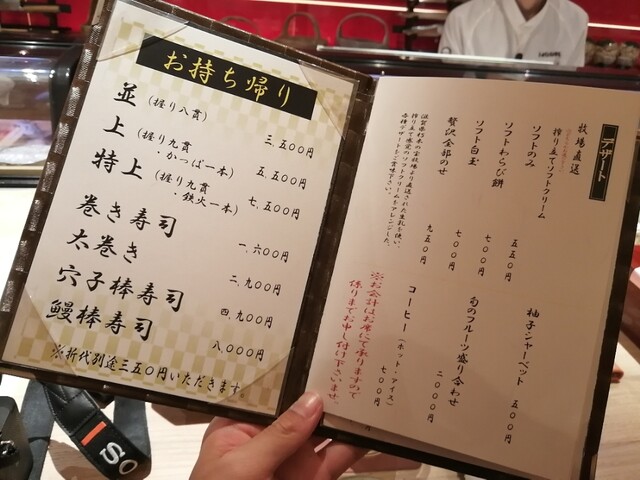 お持ち帰り
並(握り八貫)
三、五〇〇円
上(握り九貫
・かっぱ一本)
五、五〇〇円
特上(握り九貫
・鉄火一本)
七、五〇〇円
巻き寿司
一、六〇〇円
太巻き
二、九〇〇円
穴子棒寿司
四、九〇〇円
鰻棒寿司
八、〇〇〇円
※折代別途三五〇円いただきます。
デザート
牧場直送
搾り立てソフトクリーム
ソフトのみ
五五〇円
ソフトわらび餅
七〇〇円
ソフト白玉
七〇〇円
贅沢全部のせ
九五〇円
柚子シャーベット
五〇〇円
旬のフルーツ盛り合わせ
二〇〇〇円
コーヒー(ホット・アイス)
七〇〇円
※お会計はお席にて承りますので
係りまでお申し付け下さいませ。
SO